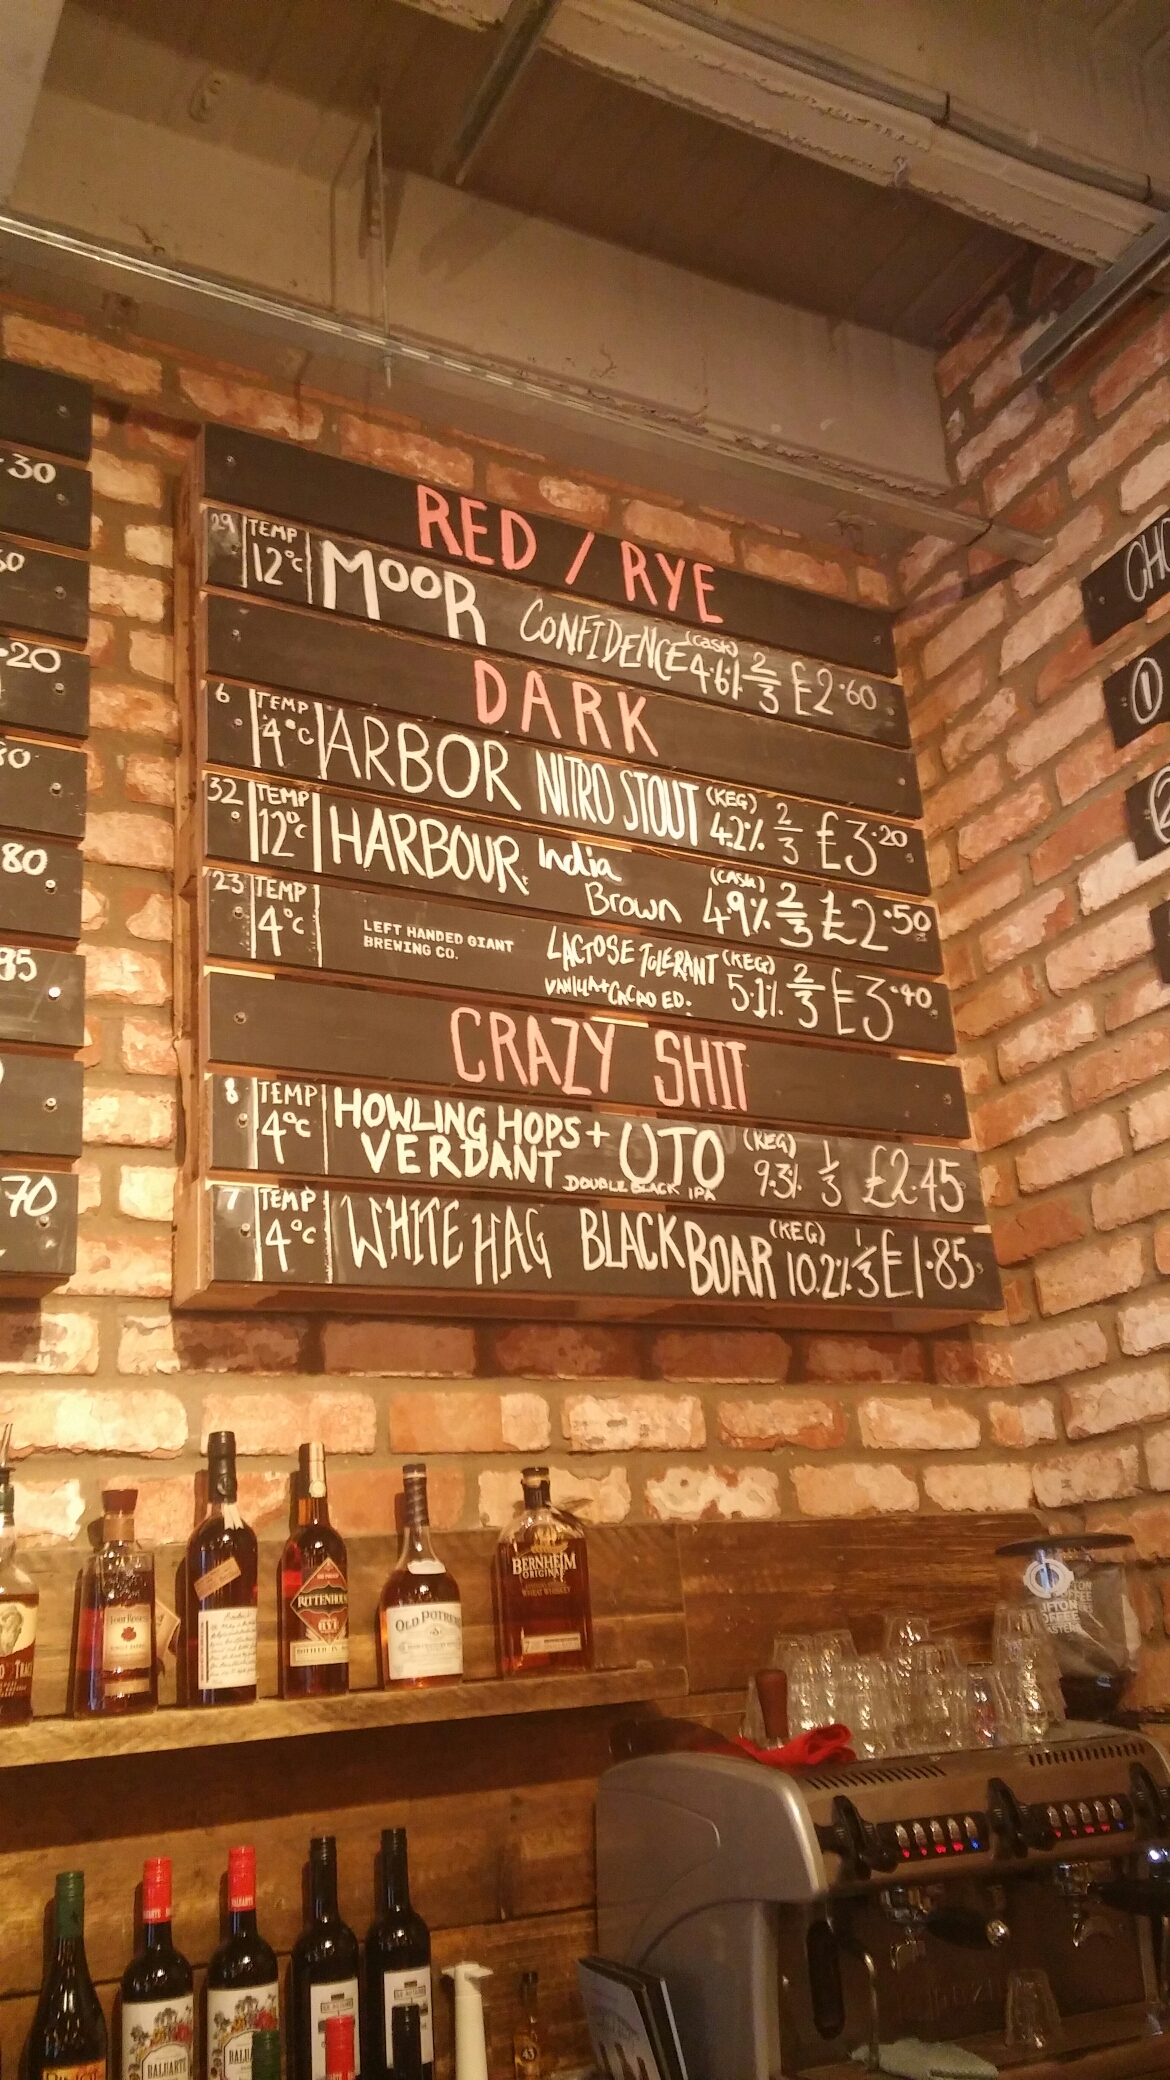 .30
50
.20
80
95
70
RED / RYE
29 TEMP 12°C MOOR CONFIDENCE (CASK) 4.6% 2/3 £2.60
DARK
6 TEMP 4°C ARBOR NITRO STOUT (KEG) 4.2% 2/3 £3.20
32 TEMP 12°C HARBOUR India Brown (CASK) 4.9% 2/3 £2.50
23 TEMP 4°C LEFT HANDED GIANT BREWING CO. LACTOSE TOLERANT VANILLA + CACAO ED. (KEG) 5.1% 2/3 £3.40
CRAZY SHIT
8 TEMP 4°C HOWLING HOPS + VERDANT UTO DOUBLE BLACK IPA (KEG) 9.3% 1/3 £2.45
7 TEMP 4°C WHITE HAG BLACK BOAR (KEG) 10.2% 1/3 £1.85
CHO
1
2
Four Roses
SINGLE BARREL
RITTENHOUSE
RYE
BOTTLED IN
OLD POTRERO
BERNHEIM
ORIGINAL
WHEAT WHISKEY
7
CLIFTON
COFFEE
BALUARTE
BALUARTE
43